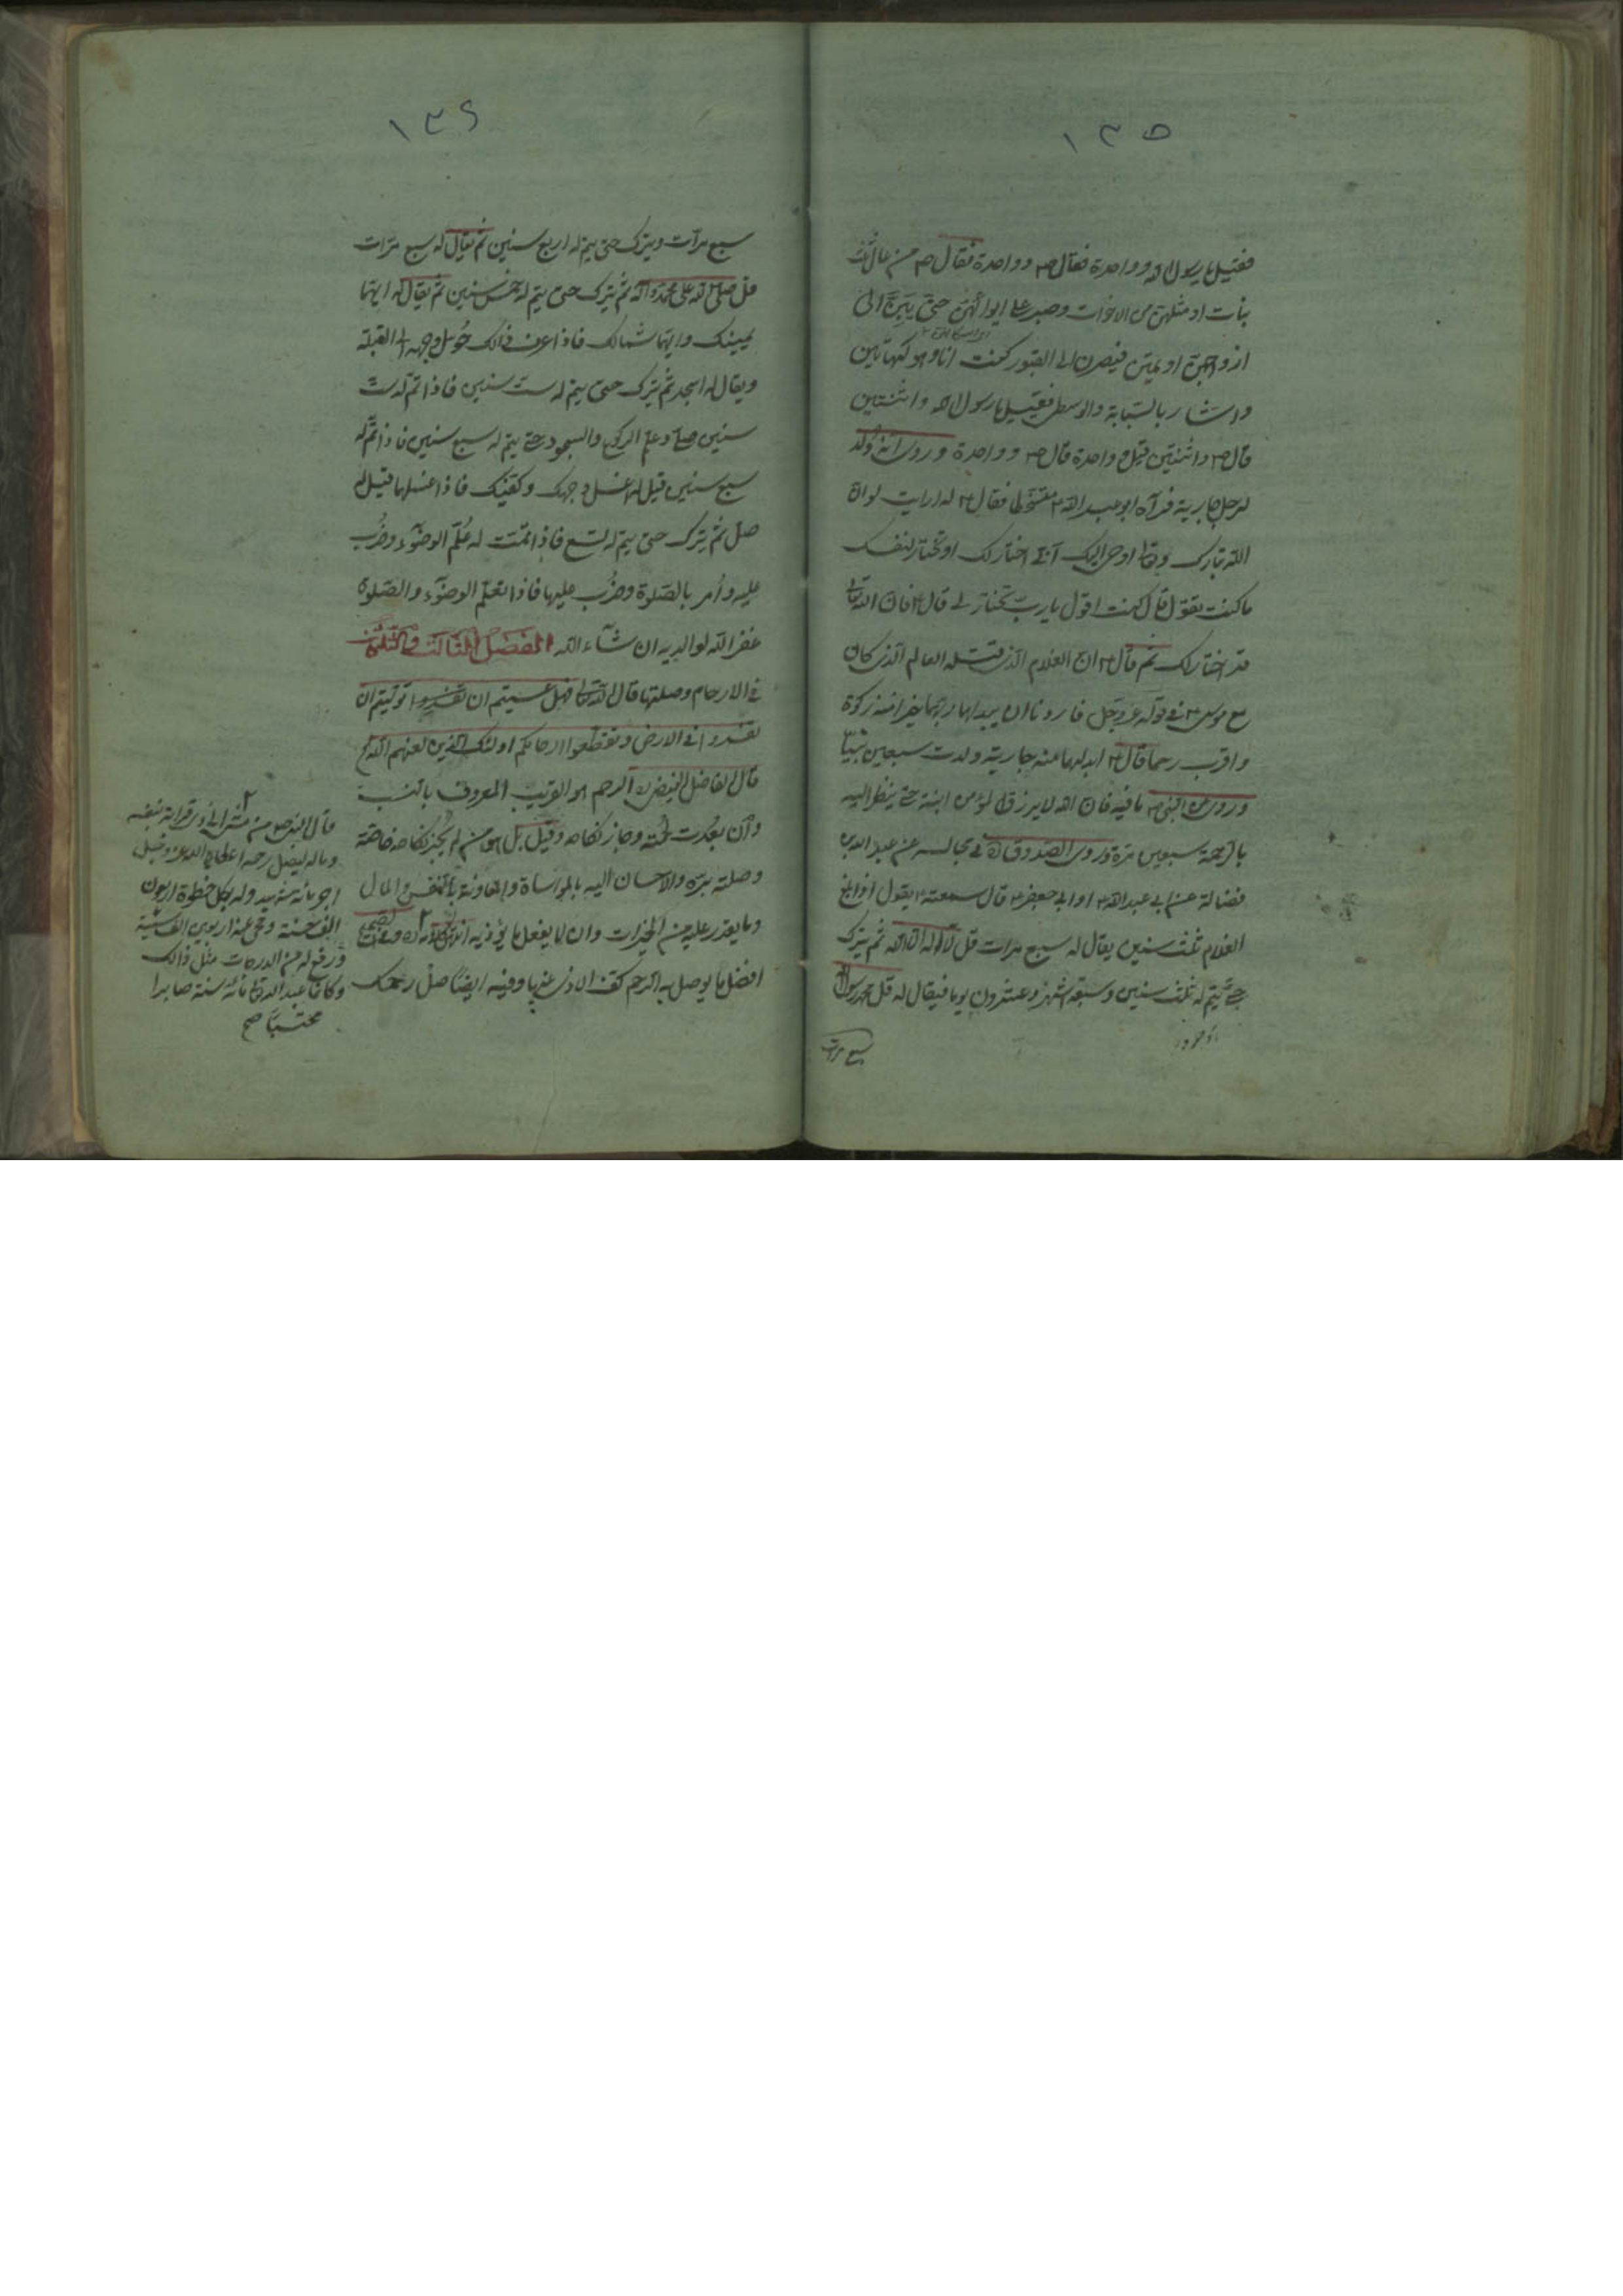 ١٣٥
فقيل يا رسول الله وواحدة فقال ص وواحدة فقال ص من عال ثلث
بنات او مثلهن من الاخوات وصبر على ايوائهن حتى يبن الى
ازواجهن او يمتن فيصرن الى القبور كنت انا وهو كهاتين
واشار بالسبابة والوسطى فقيل يا رسول الله واثنتين
قال ص واثنتين قيل وواحدة قال ص وواحدة وروى انه ولد
لرجل جارية فرآه ابو عبد الله ع متسخطا فقال ع له ارايت لو ان
الله تبارك وتعالى اوحى اليك انى اختار لك او تختار لنفسك
ما كنت تقول قال كنت اقول يا رب تختار لى قال ع فان الله تعالى
قد اختار لك ثم قال ع ان الغلام الذى قتله العالم الذى كان
مع موسى ع فى قوله عز وجل فاردنا ان يبدلهما ربهما خيرا منه زكوة
واقرب رحما قال ع ابدلهما منه جارية ولدت سبعين نبيا
وروى عن النبى ص ما فيه فان الله لا يرزق لمؤمن ابنة حتى ينظر اليه
بالرحمة سبعين مرة وروى الصدوق ره فى مجالسه عن عبد الله بن
فضالة عن ابى عبد الله ع او ابى جعفر ع قال سمعته يقول اذا بلغ
الغلام ثلث سنين يقال له سبع مرات قل لا اله الا الله ثم يترك
حتى يتم له ثلث سنين وسبعة اشهر وعشرون يوما فيقال له قل محمد رسول الله
سبع مرات
١٣٦
سبع مرآت ويترك حتى يتم له اربع سنين ثم يقال له سبع مرات
قل صلى الله على محمد وآله ثم يترك حتى يتم له خمس سنين ثم يقال له ايهما
يمينك وايهما شمالك فاذا عرف ذلك حول وجهه الى القبلة
ويقال له اسجد ثم يترك حتى يتم له ست سنين فاذا تم له ست
سنين صلى وعلم الركوع والسجود حتى يتم له سبع سنين فاذا تم له
سبع سنين قيل له اغسل وجهك وكفيك فاذا غسلهما قيل له
صل ثم يترك حتى يتم له تسع فاذا تمت له علم الوضوء وضرب
عليه وامر بالصلوة وضرب عليها فاذا تعلم الوضوء والصلوة
غفر الله لوالديه ان شآء الله الفصل الثالث والثلثون
فى الارحام وصلتها قال الله تعالى فهل عسيتم ان توليتم ان
تفسدوا فى الارض وتقطعوا ارحامكم اولئك الذين لعنهم الله
قال الفاضل الفيض ره الرحم هو القريب المعروف بالنسب
وان بعدت لحمته وجاز نكاحه وقيل بل هو من لم يجز نكاحه خاصة
وصلته بره والاحسان اليه بالمواساة والمعاونة بالنفس والمال
وما يقدر عليه من الخيرات وان لا يفعل ما يؤذيه
افضل ما يوصل به الرحم كف الاذى عنها وفيه ايضا صل رحمك
قال النبى ص من مشى الى ذى قرابة بنفسه
وماله ليصل رحمه اعطاه الله عز وجل
اجر مائة شهيد وله بكل خطوة اربعون
الف حسنة ومحى عنه اربعين الف سيئة
ورفع له من الدرجات مثل ذلك
وكانما عبد الله تعالى مائة سنة صابرا
محتسبا صح